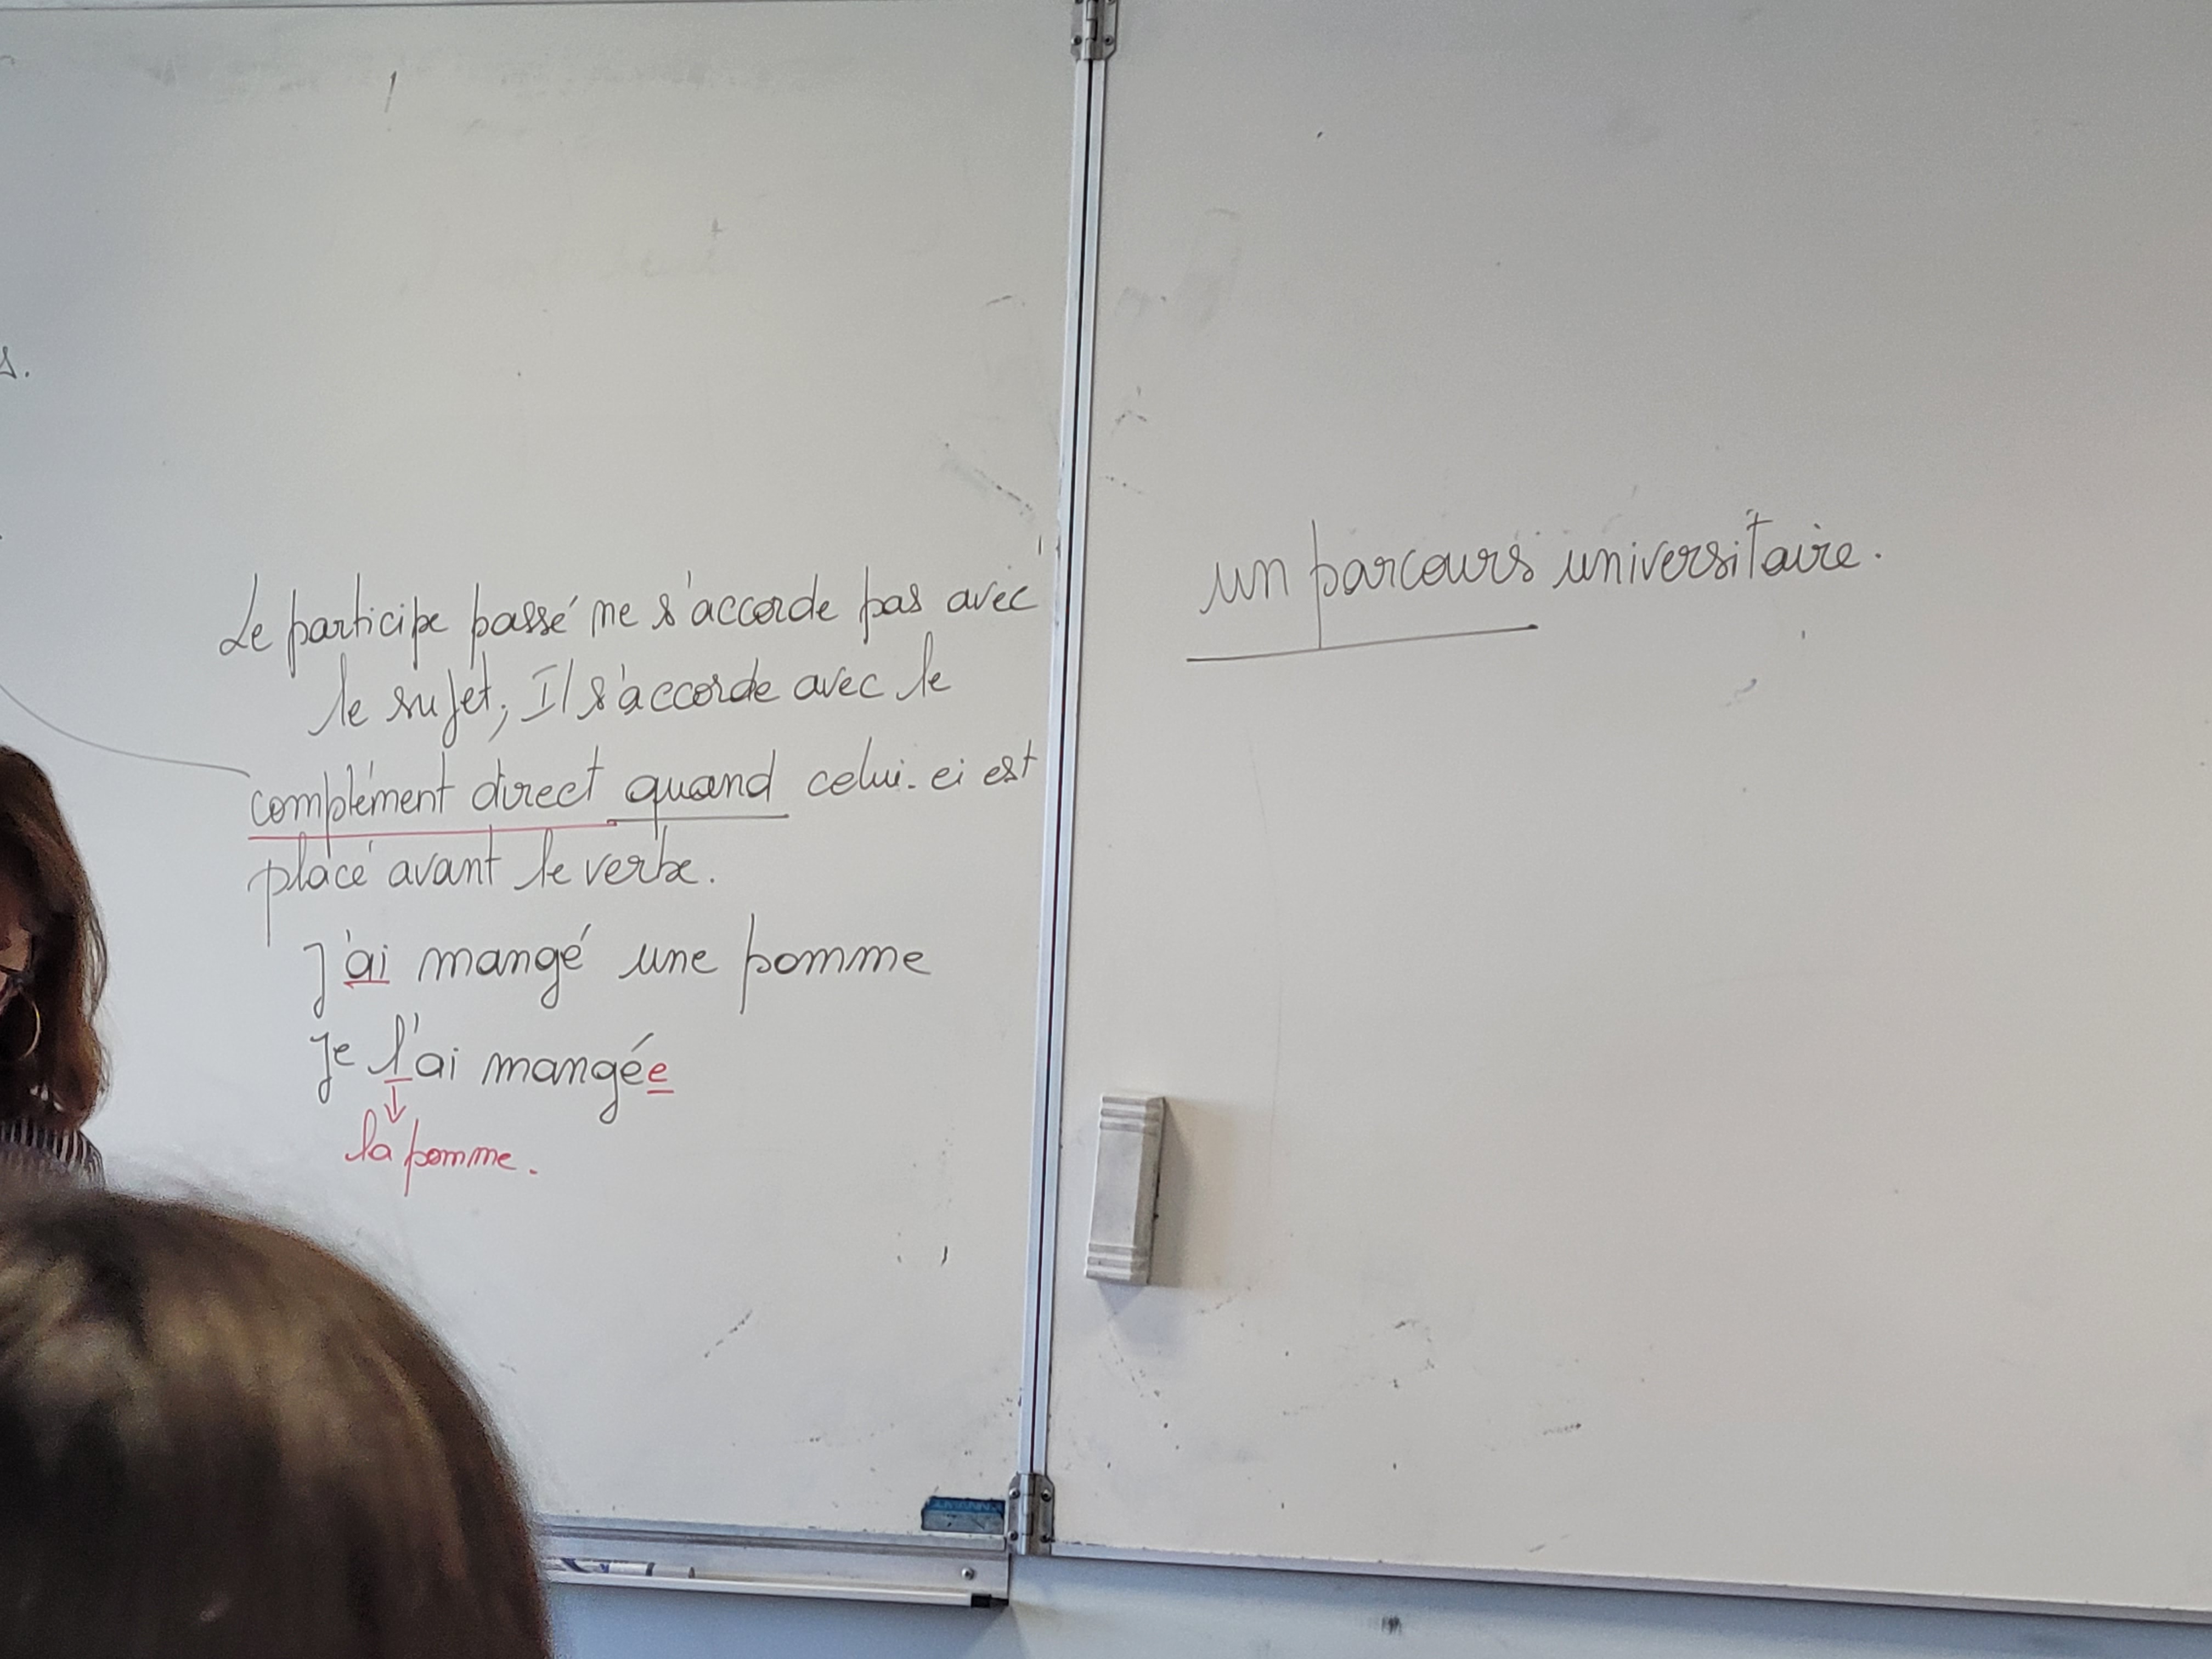 Le participe passé ne s'accorde pas avec
le sujet, Il s'accorde avec le
complément direct quand celui-ci est
placé avant le verbe.
J'ai mangé une pomme
Je l'ai mangée
la pomme.
un parcours universitaire.